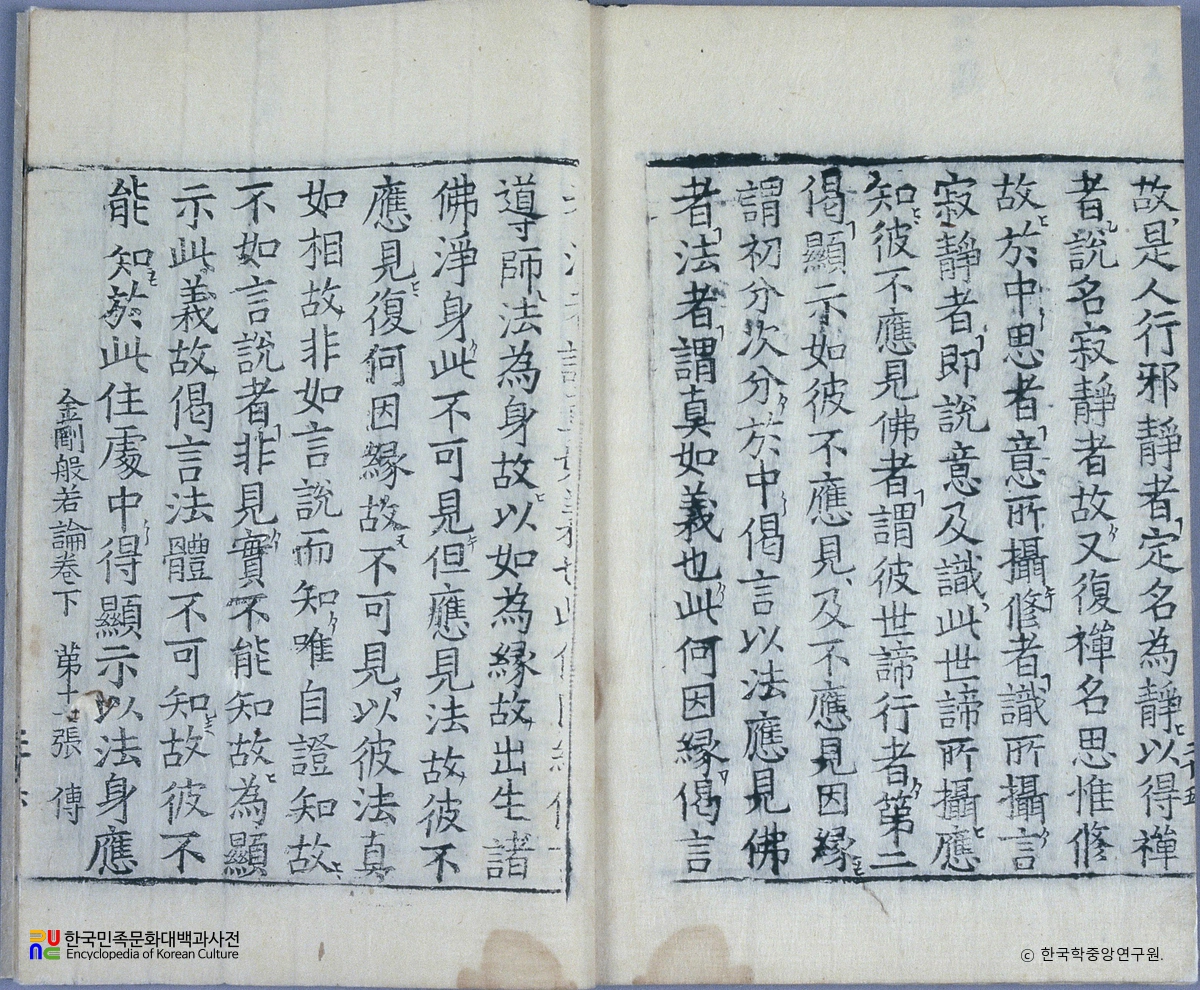 故是人行邪靜者定名為靜以得禪
者說名寂靜者故又復禪名思惟修
故於中思者意所攝修者識所攝言
寂靜者即說意及識此世諦所攝應
知彼不應見佛者謂彼世諦行者第二
偈顯示如彼不應見及不應見因緣
謂初分次分於中偈言以法應見佛
者法者謂真如義也此何因緣偈言
導師法為身故以如為緣故出生諸
佛淨身此不可見但應見法故彼不
應見復何因緣故不可見以彼法真
如相故非如言說而知唯自證知故
不如言說者非見實不能知故為顯
示此義故偈言法體不可知故彼不
能知於此住處中得顯示以法身應
金剛般若論卷下 第十 張 傳
한국민족문화대백과사전
Encyclopedia of Korean Culture
ⓒ 한국학중앙연구원.